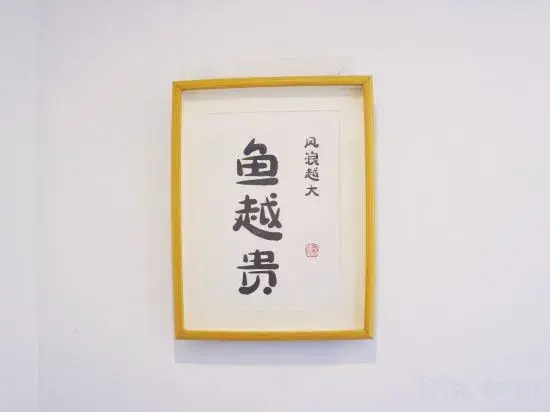 风浪越大
鱼越贵